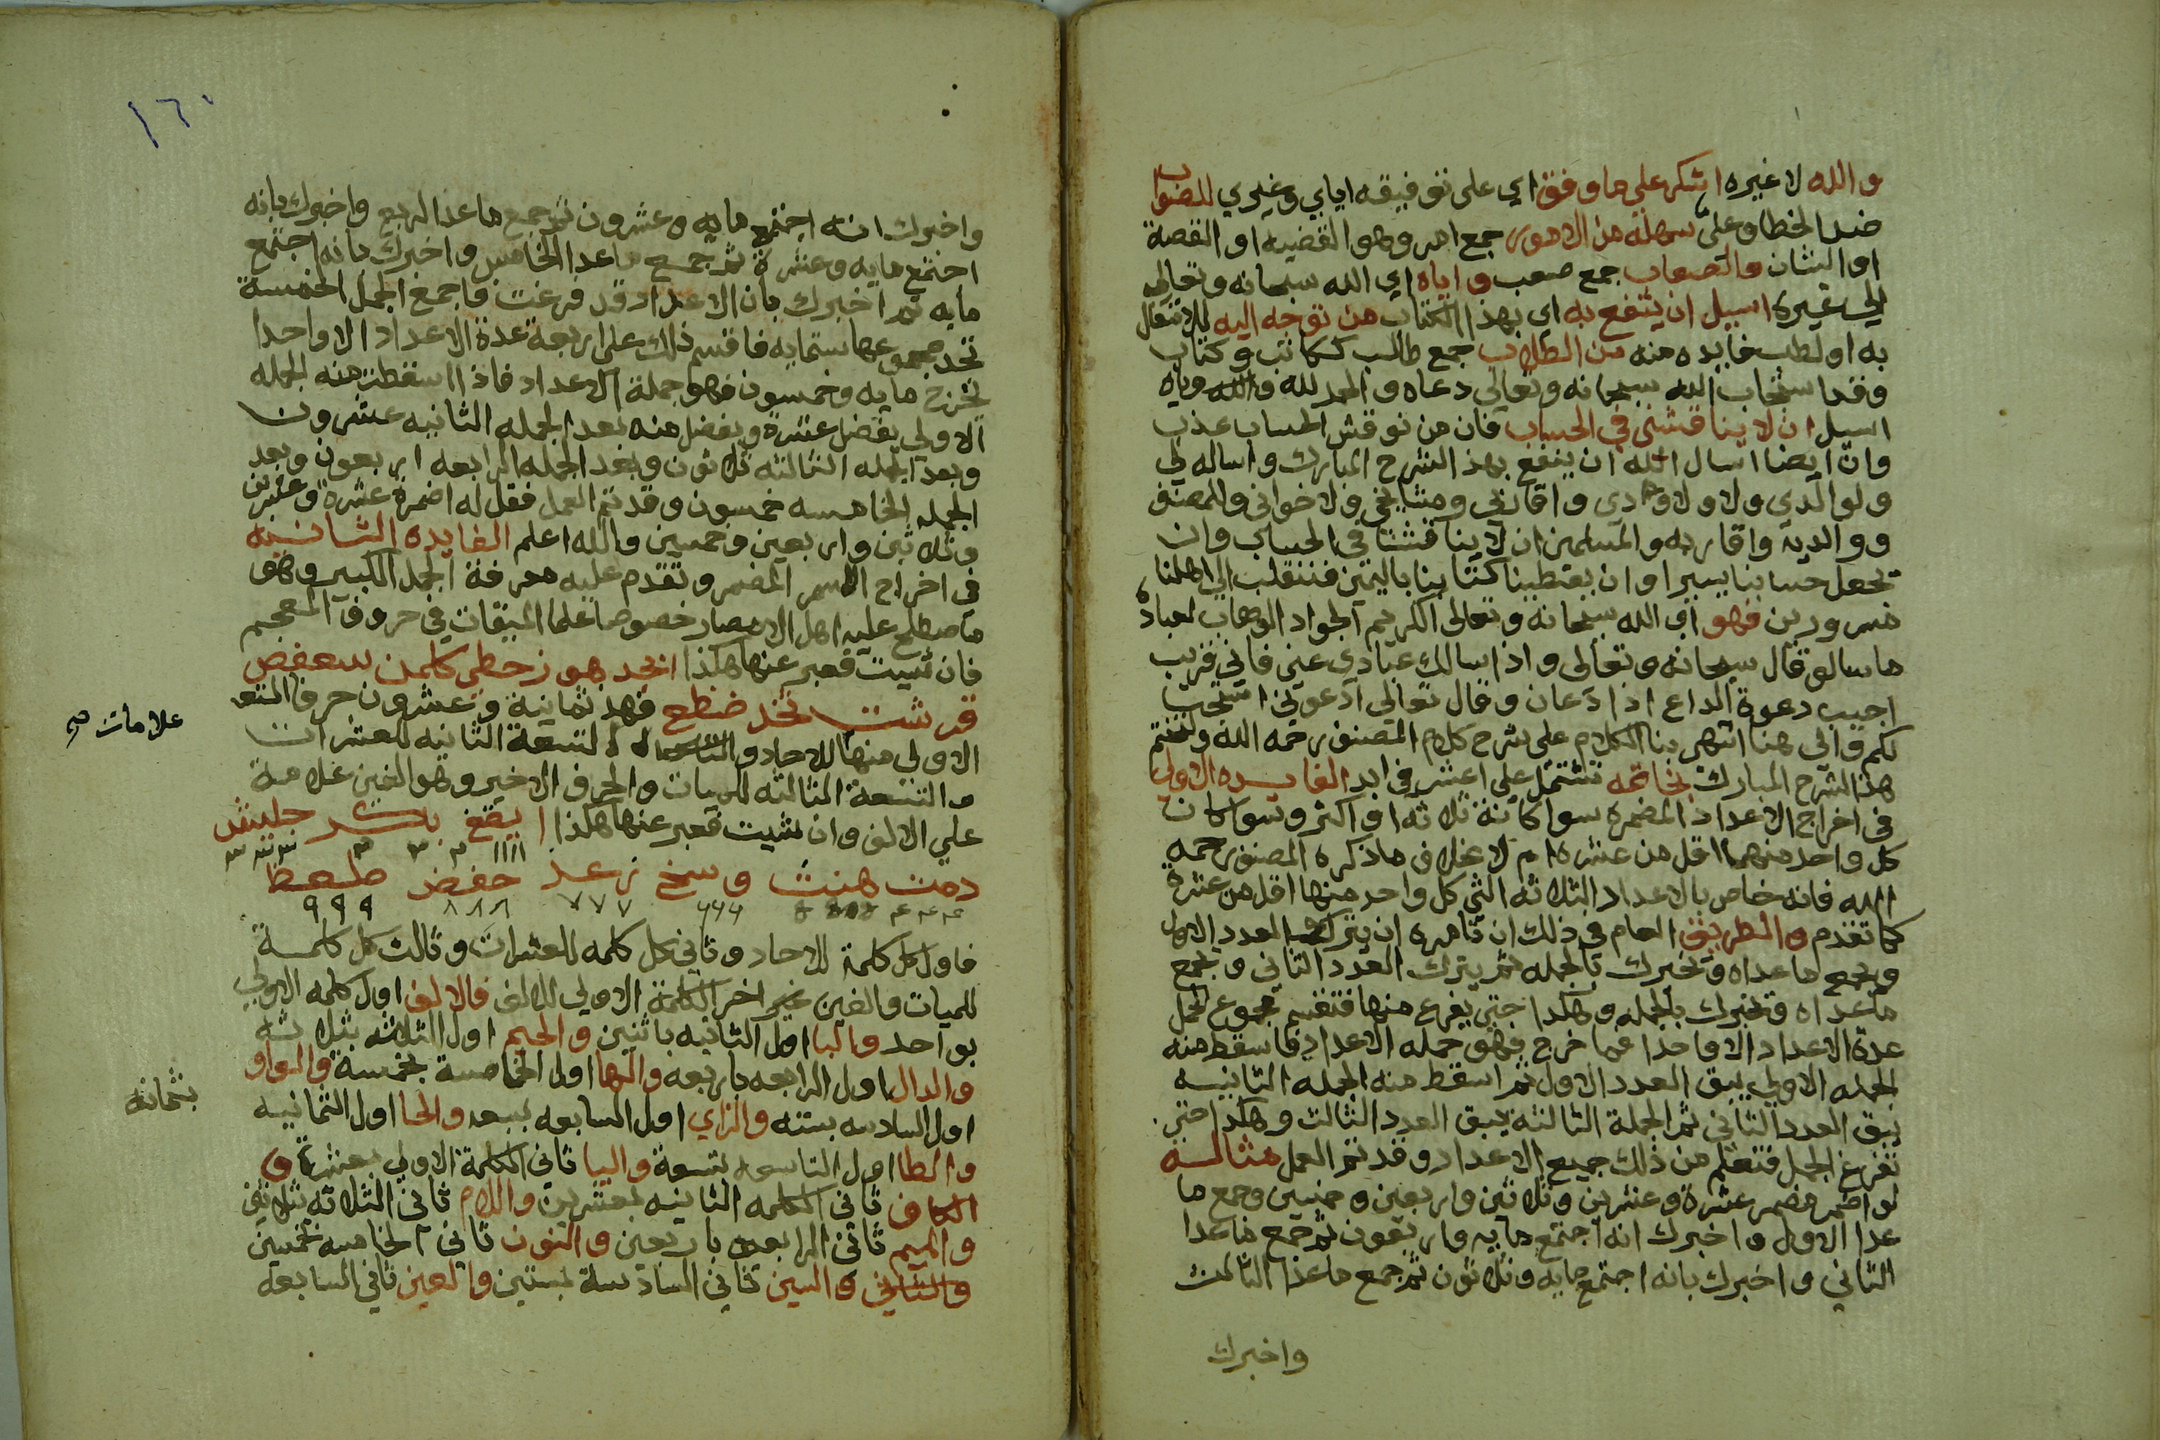 والله لا غيره اشكر علي ما وفق اي على توفيقه اياي وغيري للصواب
ضد الخطا وعلى سهلة من الامور جمع امر وهو القضيه او القصة
او الشان والصعاب جمع صعب واياه اي الله سبحانه وتعالى
لا غيره اسيل ان ينتفع به اي بهذا الكتاب من توجه اليه للاشتغال
به او لطلب فايده منه من الطلاب جمع طالب ككاتب وكتاب
وقد استجاب الله سبحانه وتعالي دعاه والحمد لله واياه
اسيل ان لا يناقشني في الحساب فان من نوقش الحساب عذب
وانا ايضا اسال الله ان ينفع بهذ الشرح المبارك واساله لي
ولوالدي ولاولادي واقاربي ومشايخي ولاخواني وللمصنف
ووالديه واقاربه والمسلمين ان لا يناقشنا في الحساب وان
يجعل حسابنا يسيرا وان يعطينا كتابنا باليمين فننقلب الي اهلنا
مسرورين فهو اي الله سبحانه وتعالى الكريم الجواد الوهاب لعباده
ما سالوه قال سبحانه وتعالى واذا سالك عبادي عني فاني قريب
اجيب دعوة الداع اذا دعان وقال تعالي ادعوني استجب
لكم والى هنا انتهى بنا الكلام على شرح كلام المصنف رحمه الله ولنختم
هذا الشرح المبارك بخاتمه تشتمل على اعشر فوايد الفايده الاولي
في اخراج الاعداد المضمره سوا كانت ثلاثه او اكثر وسوا كان
كل واحد منهما اقل من عشره ام لا بخلاف ما ذكره المصنف رحمه
الله فانه خاص بالاعداد الثلاثه التي كل واحد منها اقل من عشرة
كما تقدم والطريق العام في ذلك ان تامره ان يترك العدد الاول
ويجمع ما عداه ويخبرك بالجمله ثم يترك العدد الثاني ويجمع
ما عداه ويخبرك بالجمله وهكذا حتى يفرغ منها فتقسم مجموع الجمل
عدة الاعداد الا واحدا فما خرج فهو جمله الاعداد فاسقط منه
الجمله الاولي يبق العدد الاول ثم اسقط منه الجمله الثانيه
يبق العدد الثاني ثم الجملة الثالثه يبق العدد الثالث وهكذا حتى
تفرغ الجمل فتعلم من ذلك جميع الاعداد وقد تم العمل مثاله
لو اضمر مضمر عشرة وعشرين وثلاثين واربعين وخمسين وجمع ما
عدا الاول واخبرك انه اجتمع مايه واربعون ثم جمع ما عدا
الثاني واخبرك بانه اجتمع مايه وثلاثون ثم جمع ما عدا الثالث
واخبرك
١٦٠
واخبرك انه اجتمع مايه وعشرون ثم جمع ما عدا الرابع واخبرك بانه
اجتمع مايه وعشرة ثم جمع ما عدا الخامس واخبرك بانه اجتمع
مايه ثم اخبرك بان الاعداد قد فرغت فاجمع الجمل الخمسة
تجد مجموعها ستمايه فاقسم ذلك على اربعة عدة الاعداد الا واحدا
يخرج مايه وخمسون فهو جملة الاعداد فاذا اسقطت منه الجمله
الاولي يفضل عشرة ويفضل منه بعد الجمله الثانيه عشرون
وبعد الجمله الثالثه ثلاثون وبعد الجمله الرابعه اربعون وبعد
الجمله الخامسه خمسون وقد تم العمل فقل له اضمرة عشرة وعشرين
وثلاثين واربعين وخمسين والله اعلم الفايده الثانيه
في اخراج الاسم المضمر وتقدم عليه معرفة الجمل الكبير وهو
ما صطلح عليه اهل الامصار خصوصا علما الميقات في حروف المعجم
فان شيت فعبر عنها هكذا ابجد هوز حطي كلمن سعفص
قرشت ثخذ ضظغ فهذ ثمانية وعشرون حرفا التسعه
علامات صح
الاولي منها للاحاد والتسعة الثانيه للعشرات
والتسعة الثالثه للميات والحرف الاخير وهو الغين علامة
علي الالف وان شيت فعبر عنها هكذا ايقغ بكر جلش
١١١١ ٢ ٢ ٢ ٣ ٣ ٣
دمت هنث وسخ زعذ حفض طصظ
٤ ٤ ٤ ٦٦٦ ٧٧٧ ٨٨٨ ٩٩٩
فاول كل كلمة للاحاد وثاني كل كلمه للعشرات وثالث كل كلمة
للميات والغين اخر الكلمة الاولي للالف فالالف اول كلمه الاولي
بواحد والبا اول الثانيه باثنين والجيم اول الثلاثه بثلاثه
والدال اول الرابعه باربعه والها اول الخامسة بخمسة والواو
اول السادسه بسته والزاي اول السابعه بسبعه والحا اول الثمانيه
بثمانه
والطا اول التاسعه بتسعة واليا ثاني الكلمة الاولي بعشرة و
الكاف ثاني الكلمه الثانيه بعشرين واللام ثاني الثلاثه بثلاثين
والميم ثاني الرابعه باربعين والنون ثاني الخامسه بخمسين
والسين ثاني السادسة بستين والعين ثاني السابعه